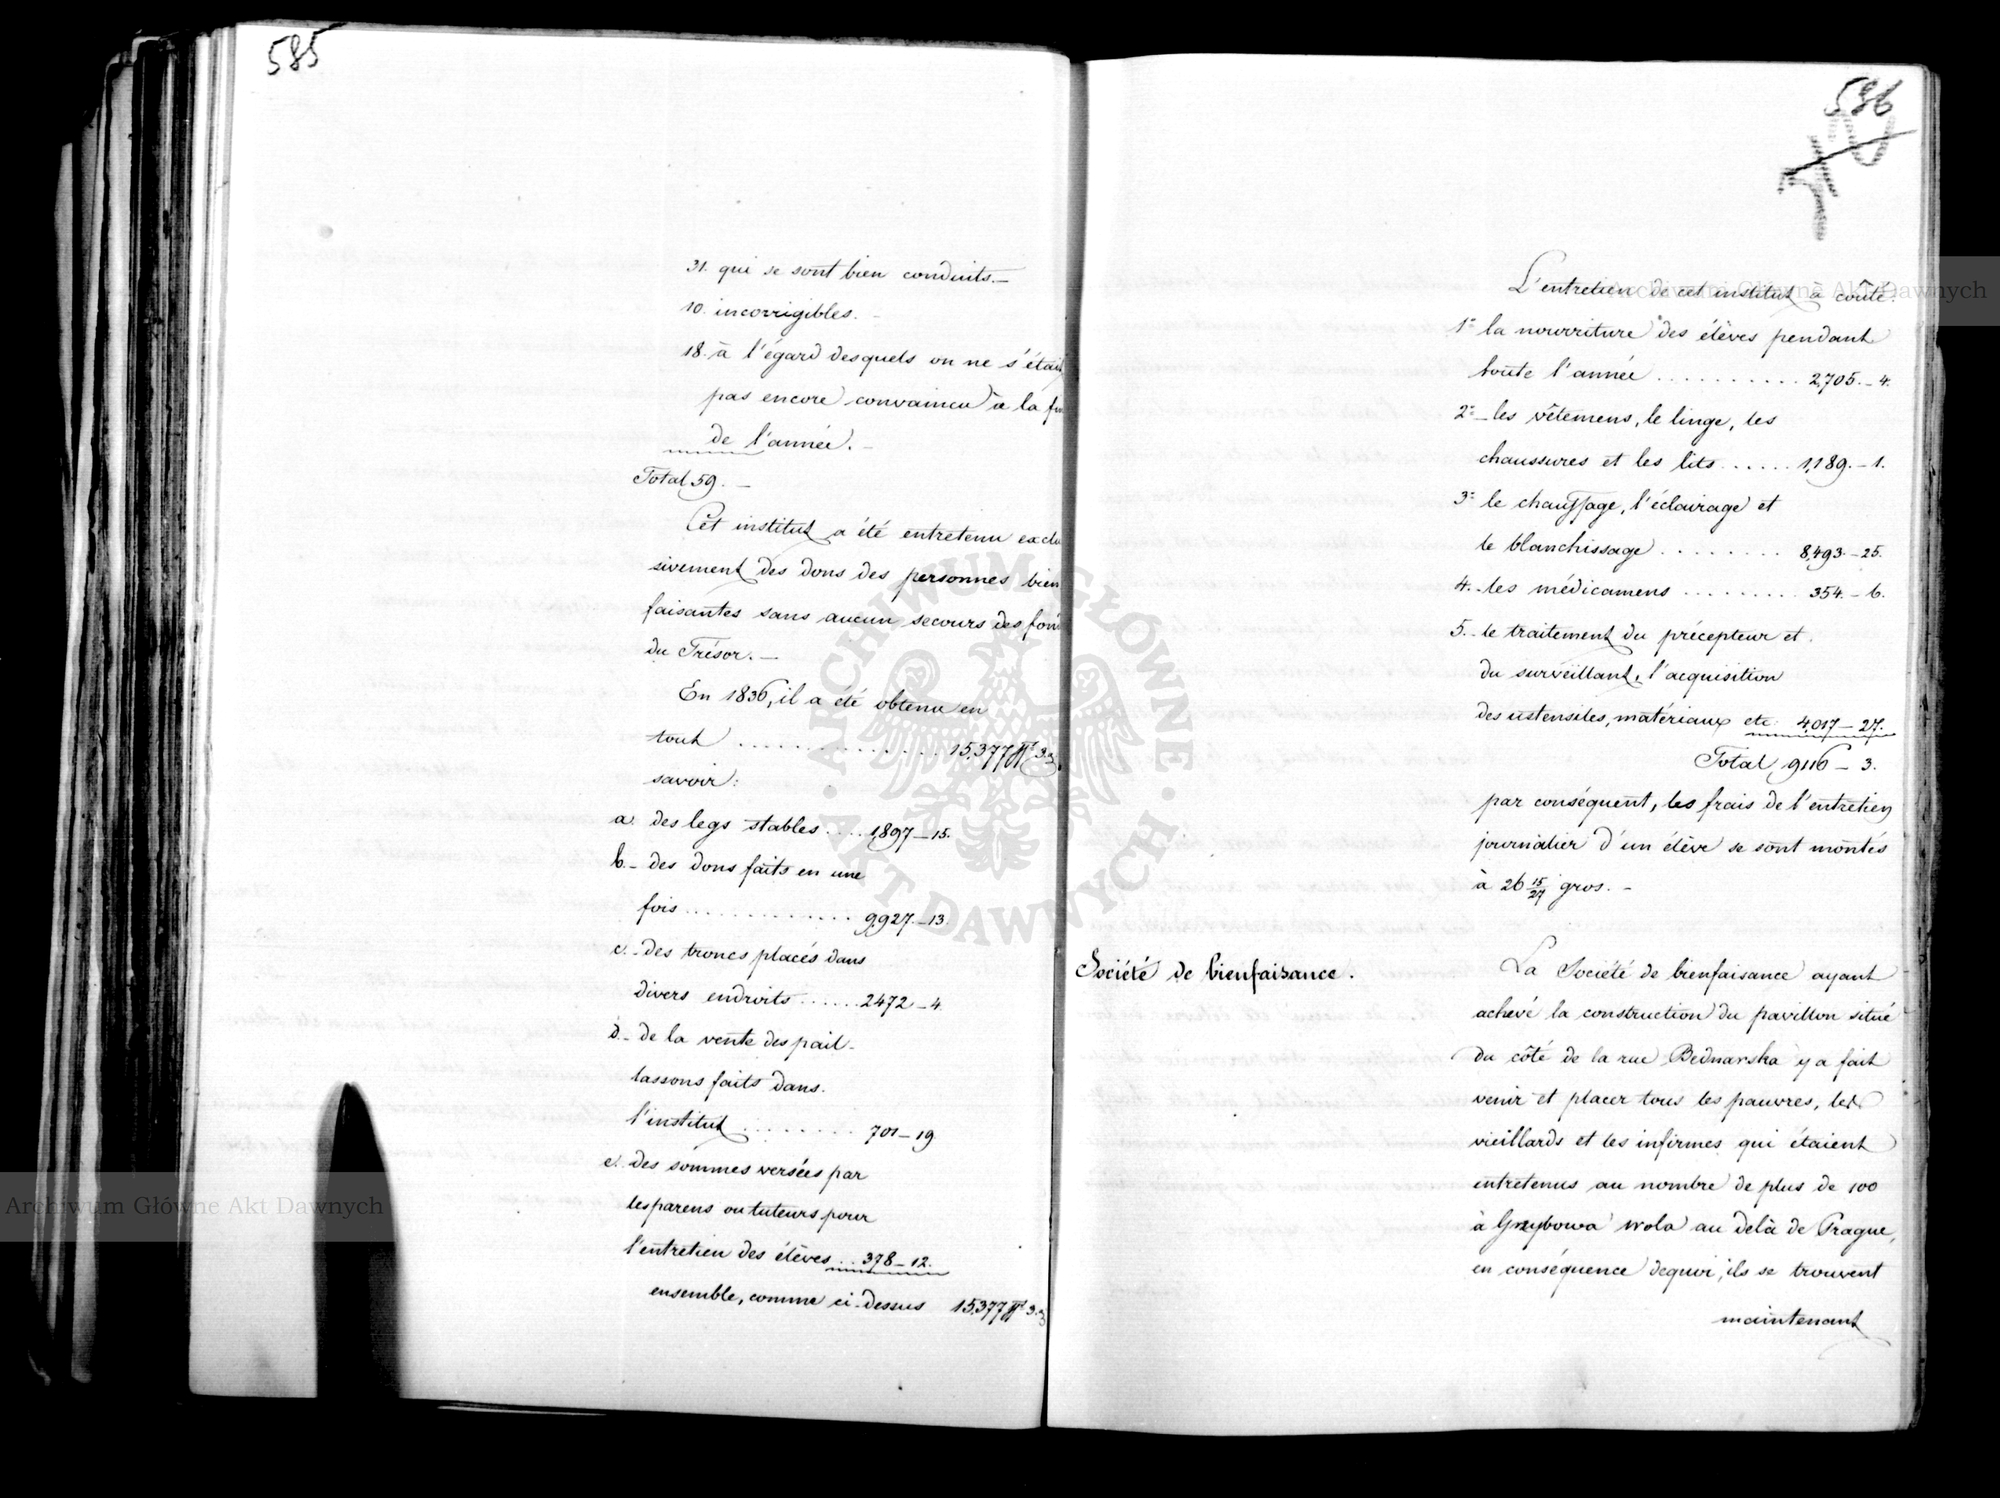 585
31. qui se sont bien conduits.—
10. incorrigibles. –
18. à l'égard desquels on ne s'était
pas encore convaincu à la fin
de l'année. –
Total 59. –
Cet institut a été entretenu exclu
sivement des dons des personnes bien
faisantes sans aucun secours des fon
du Trésor. –
En 1836, il a été obtenu en
tout .............. 15,377 3.
savoir:
a. des legs stables .... 1,897–15.
b.– des dons faits en une
fois ............. 9,927–13.
c.– des troncs placés dans
divers endroits ...... 2472–4.
d.– de la vente des pail–
lassons faits dans.
l'institut ......... 701–19
e. des sommes versées par
les parens ou tuteurs pour
l'entretien des élèves .. 378–12.
ensemble, comme ci-dessus 15,377 3.
586
L'entretien de cet institut à coûté:
1º la nourriture des élèves pendant
toute l'année .......... 2,705.–4.
2º– les vêtemens, le linge, les
chaussures et les lits ...... 1,189.–1.
3º le chauffage, l'éclairage et
le blanchissage ........ 8,493–25.
4.– les médicamens ......... 354.–6.
5.– le traitement du précepteur et.
du surveillant, l'acquisition
des ustensiles, matériaux etc: 4,017–27.
Total 9116–3.
par conséquent, les frais de l'entretien
journalier d'un élève se sont montés
à 26 15/27 gros. –
Société de bienfaisance.
La Société de bienfaisance ayant
achevé la construction du pavillon situé
du côté de la rue Bednarska y a fait
venir et placer tous les pauvres, les
vieillards et les infirmes qui étaient
entretenus au nombre de plus de 100
à Grzybowa wola au delà de Prague,
en conséquence dequoi, ils se trouvent
maintenant
Archiwum Główne Akt Dawnych
Archiwum Główne Akt Dawnych
ARCHIWUM GŁÓWNE · AKT DAWNYCH ·